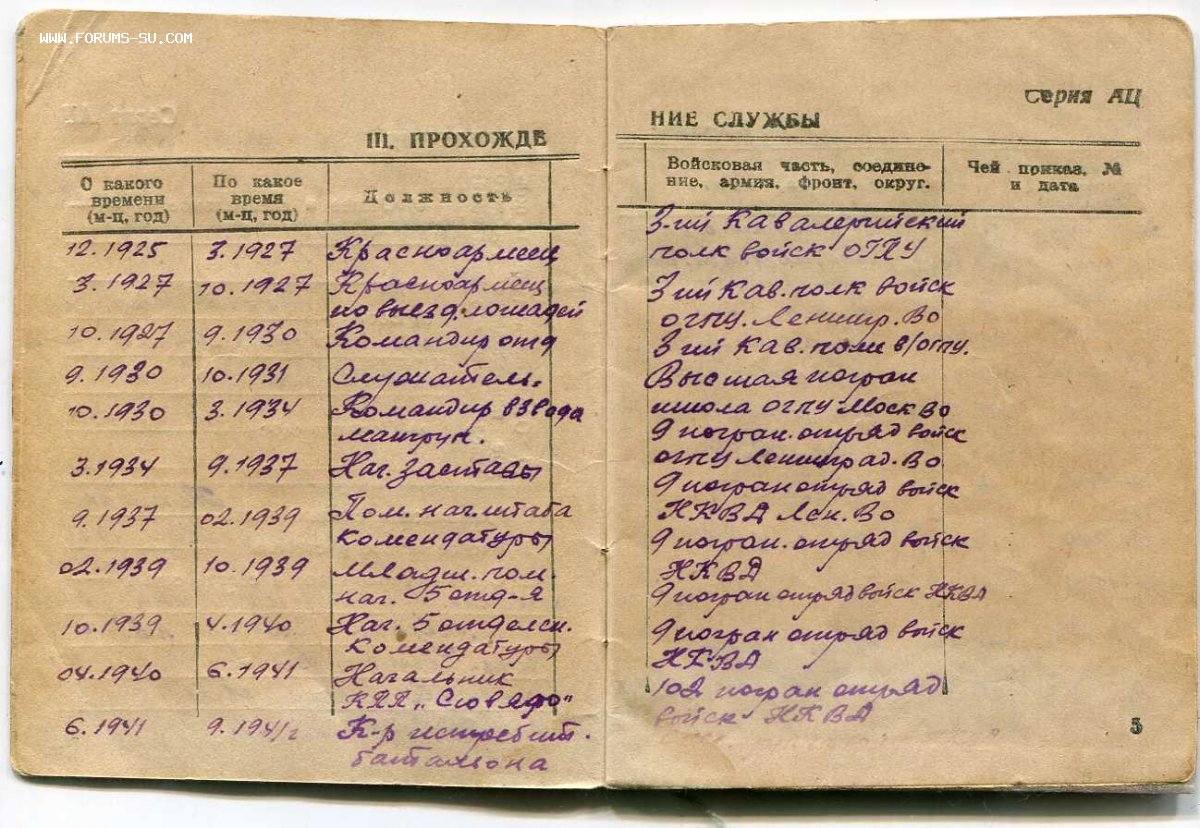 WWW.FORUMS-SU.COM
III. ПРОХОЖДЕ
С какого времени (м-ц, год)
По какое время (м-ц, год)
Должность
12.1925 3.1927 Красноармеец
3.1927 10.1927 Красноармеец
по выезд. лошадей
10.1927 9.1930 Командир отд
9.1930 10.1931 Слушатель.
10.1930 3.1934 Командир взвода
9.1937 Нач. заставы
3.1934
9.1937 02.1939 Пом. нач. штаба
комендатуры
02.1939 10.1939 Младш. пом.
нач. 5 отд-я
10.1939 4.1940 Нач. 5 отделен.
комендатуры
04.1940 6.1941 Начальник
КПП
6.1941 9.1941г К-р истребит.
батальона
Серия АЦ
НИЕ СЛУЖБЫ
Войсковая часть, соедине-
ние, армия, фронт, округ.
Чей приказ, №
и дата
3-ий Кавалерийский
полк войск ОГПУ
3 ий Кав. полк войск
ОГПУ. Ленингр. Во
3 ий Кав. полк в/ОГПУ.
Высшая погран
школа ОГПУ Моск Во
9 погран. отряд войск
ОГПУ Ленинград. Во
9 погран отряд войск
НКВД Лен. Во
9 погран. отряд войск
НКВД
9 погран отряд войск НКВД
9 погран отряд войск
НКВД
102 погран отряд
войск НКВД
5